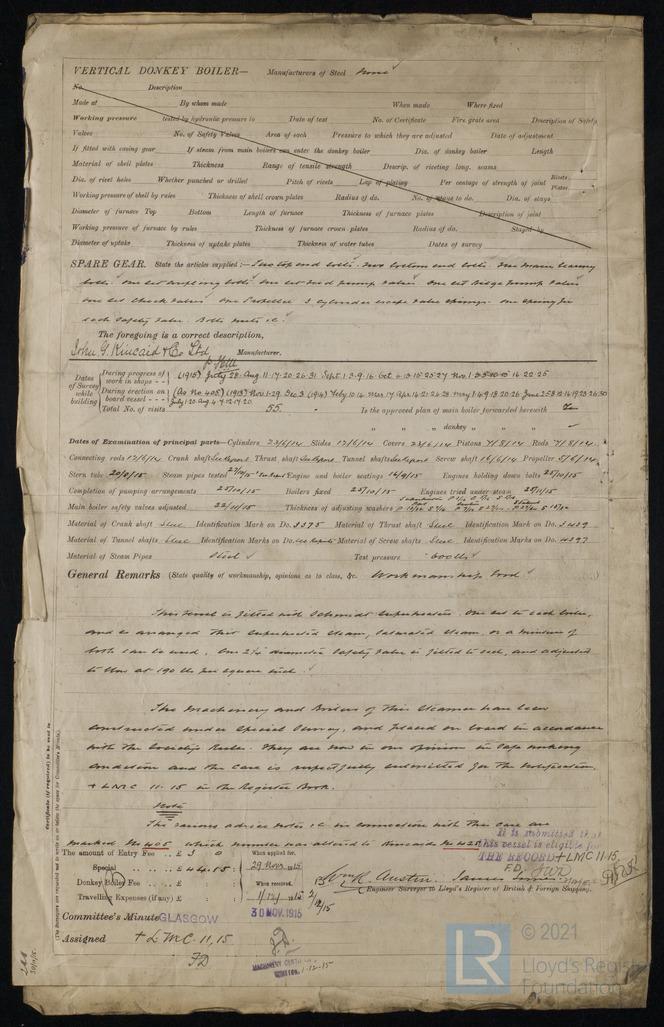 VERTICAL DONKEY BOILER— Manufacturers of Steel None
No. Description
Made at By whom made When made Where fixed
Working pressure tested by hydraulic pressure to Date of test No. of Certificate Fire grate area Description of Safety
Valves No. of Safety Valves Area of each Pressure to which they are adjusted Date of adjustment
If fitted with easing gear If steam from main boilers can enter the donkey boiler Dia. of donkey boiler Length
Material of shell plates Thickness Range of tensile strength Descrip. of riveting long. seams
Dia. of rivet holes Whether punched or drilled Pitch of rivets Lap of plating Per centage of strength of joint Rivets Plates
Working pressure of shell by rules Thickness of shell crown plates Radius of do. No. of stays to do. Dia. of stays
Diameter of furnace Top Bottom Length of furnace Thickness of furnace plates Description of joint
Working pressure of furnace by rules Thickness of furnace crown plates Radius of do. Stayed by
Diameter of uptake Thickness of uptake plates Thickness of water tubes Dates of survey
SPARE GEAR. State the articles supplied:— Two top end bolts. Two bottom end bolts. Two main bearing
bolts. One set coupling bolts. One set feed pump valves. One set bilge pump valves
one set check valves. One Propeller. 3 cylinder escape valve springs. One spring for
each safety valve. Bolts, nuts &c.
The foregoing is a correct description,
John G. Kincaid & Co Ltd Manufacturer.
Dates of Survey while building
During progress of work in shops - - (1915) July 28. Aug 11.17.20.26.31 Sept 1.3.9.16. Oct 6.13.15.25.27 Nov 1.3.5.10.15 16.22.25
During erection on board vessel - - - (As No 405) (1913) Nov 1.29. Dec 3 (1914) Feby 10.16 Mar 17
July 1.20. Aug 4.7.12.17.20
Total No. of visits 55. Is the approved plan of main boiler forwarded herewith Yes
" " " donkey " " "
Dates of Examination of principal parts—Cylinders 23/6/14 Slides 17/6/14 Covers 23/6/14 Pistons 7/8/14. Rods 7/8/14.
Connecting rods 17/6/14 Crank shaft See Report Thrust shaft See Report Tunnel shafts See Report Screw shaft 16/6/14 Propeller 5/6/14.
Stern tube 20/8/15 Steam pipes tested Engine and boiler seatings 16/9/15 Engines holding down bolts 25/10/15
Completion of pumping arrangements 25/10/15 Boilers fixed 25/10/15 Engines tried under steam 25/11/15
Main boiler safety valves adjusted 22/11/15 Thickness of adjusting washers
Material of Crank shaft Steel Identification Mark on Do. 3395 Material of Thrust shaft Steel Identification Mark on Do. 3429
Material of Tunnel shafts Steel Identification Marks on Do. See Reports Material of Screw shafts Steel Identification Marks on Do. 4397
Material of Steam Pipes Steel Test pressure 600 lbs
General Remarks (State quality of workmanship, opinions as to class, &c. Workmanship Good
This vessel is fitted with Schmidt superheaters. One set to each boiler,
and is arranged that superheated steam, saturated steam, or a mixture of
both can be used. One 2½" diameter safety valve is fitted to each, and adjusted
to blow at 190 lbs per square inch.
The Machinery and Boilers of this Steamer have been
constructed under Special Survey, and placed on board in accordance
with the Society's Rules. They are now in our opinion in safe working
condition and the case is respectfully submitted for the notification.
+ LMC 11.15 in the Register Book.
Note
The various advice notes &c in connection with this case are
marked No 405 which number was altered to Kincaids No 425
It is submitted that
this vessel is eligible for
THE RECORD + LMC 11.15.
F.D.
The amount of Entry Fee .. £ 3 : 0 When applied for,
Special .. .. £ 44.15 : 29 Nov. 1915
Donkey Boiler Fee .. .. £ When received,
Travelling Expenses (if any) £ 1/12/1915
Austin. James
Engineer Surveyor to Lloyd's Register of British & Foreign Shipping.
Committee's Minute GLASGOW 30 NOV. 1915
Assigned + LMC. 11,15
FD
MACHINERY CERTIFICATE
WRITTEN. 1-12-15
Certificate (if required) to be sent to
(The Surveyors are requested not to write on or below the space for Committee's Minute.)
LR
© 2021
Lloyd's Register
Foundation